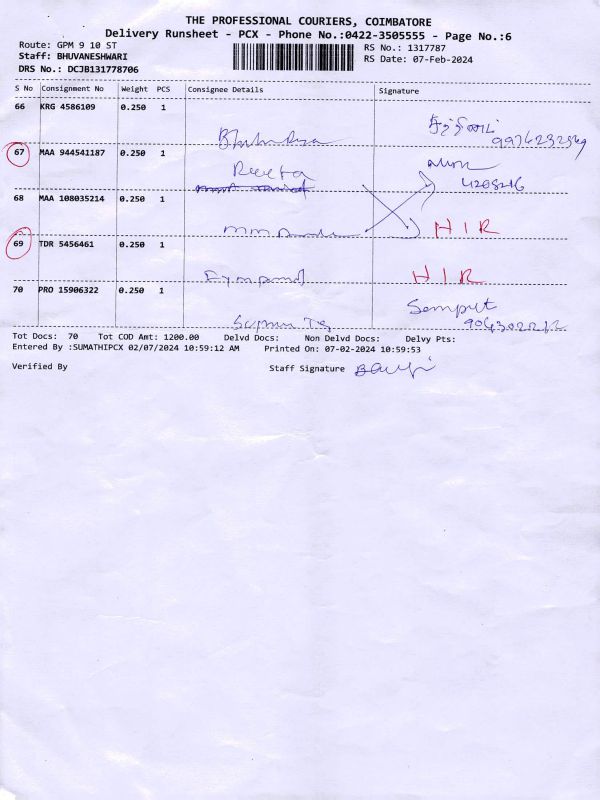 THE PROFESSIONAL COURIERS, COIMBATORE
Delivery Runsheet - PCX - Phone No.:0422-3505555 - Page No.:6
Route: GPM 9 10 ST
RS No.: 1317787
Staff: BHUVANESHWARI
RS Date: 07-Feb-2024
DRS No.: DCJB131778706
S No Consignment No Weight PCS Consignee Details Signature
66 KRG 4586109 0.250 1
67 MAA 944541187 0.250 1
Reeta
68 MAA 108035214 0.250 1
HIR
69 TDR 5456461 0.250 1
HIR
70 PRO 15906322 0.250 1
Tot Docs: 70 Tot COD Amt: 1200.00 Delvd Docs: Non Delvd Docs: Delvy Pts:
Entered By :SUMATHIPCX 02/07/2024 10:59:12 AM Printed On: 07-02-2024 10:59:53
Verified By Staff Signature